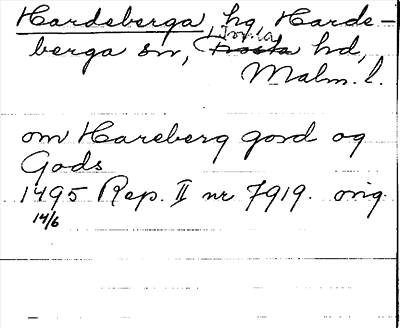 Hardeberga, hg, Harde-
berga sn, Torna hd,
Malm. l.
om Hareberg gord og
Gods
1495 Rep. II nr 7919. orig
14/6